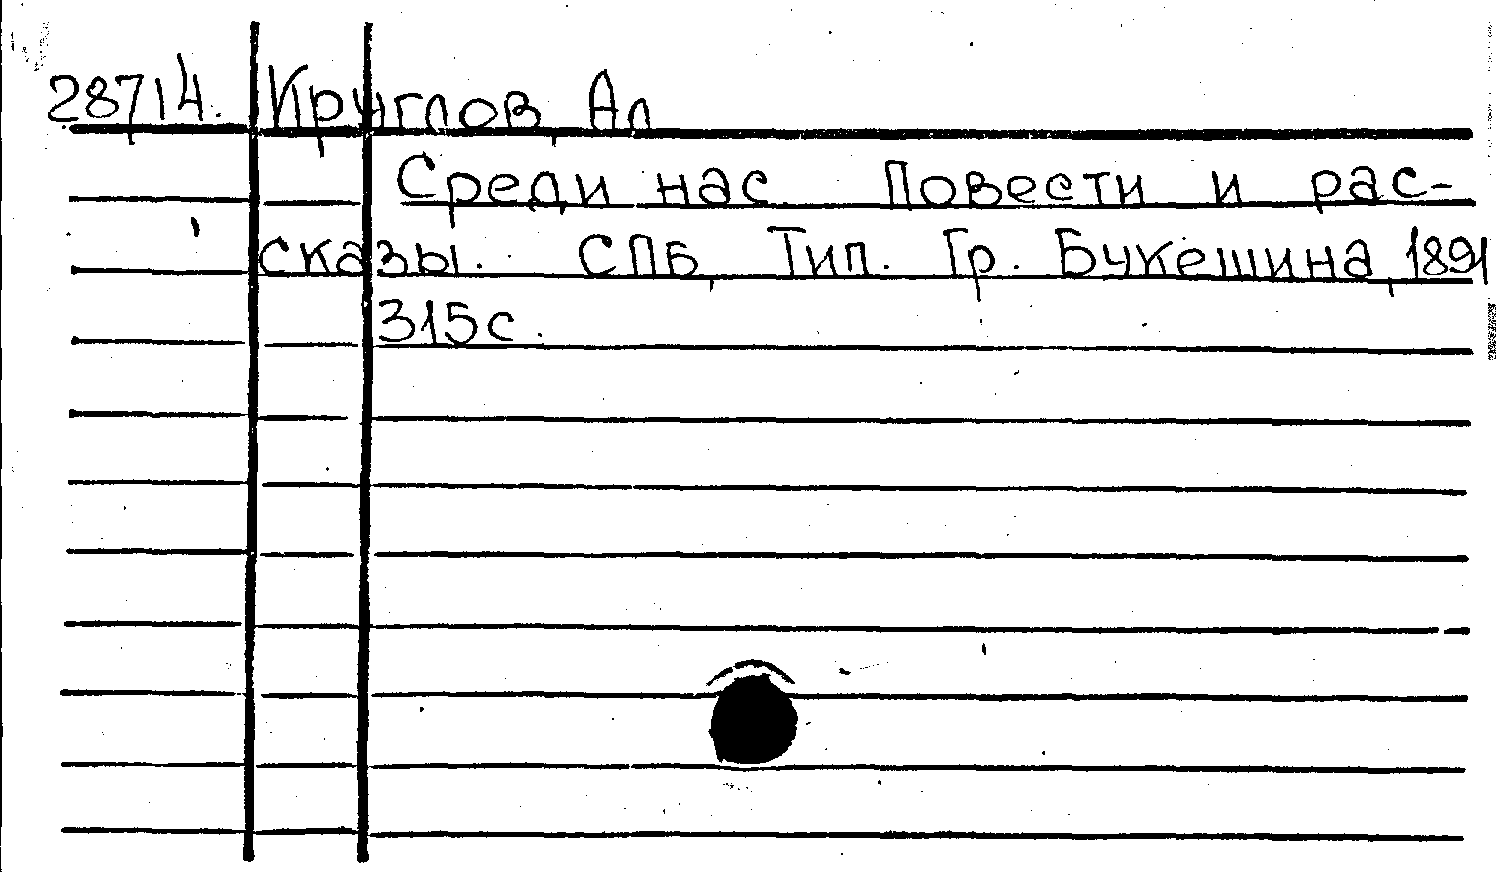 28714. Круглов, Ал
Среди нас. Повести и рас-
сказы. СПБ, Тип. Гр. Букешина, 1891
315с.